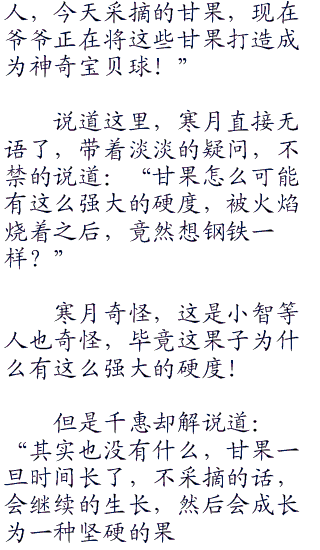 人，今天采摘的甘果，现在
爷爷正在将这些甘果打造成
为神奇宝贝球！”
说道这里，寒月直接无
语了，带着淡淡的疑问，不
禁的说道：“甘果怎么可能
有这么强大的硬度，被火焰
烧着之后，竟然想钢铁一
样？”
寒月奇怪，这是小智等
人也奇怪，毕竟这果子为什
么有这么强大的硬度！
但是千惠却解说道：
“其实也没有什么，甘果一
旦时间长了，不采摘的话，
会继续的生长，然后会成长
为一种坚硬的果